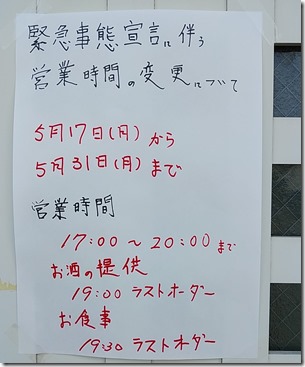 緊急事態宣言に伴う
営業時間の変更について
5月17日(月)から
5月31日(月)まで
営業時間
17:00～20:00まで
お酒の提供
19:00 ラストオーダー
お食事
19:30 ラストオーダー